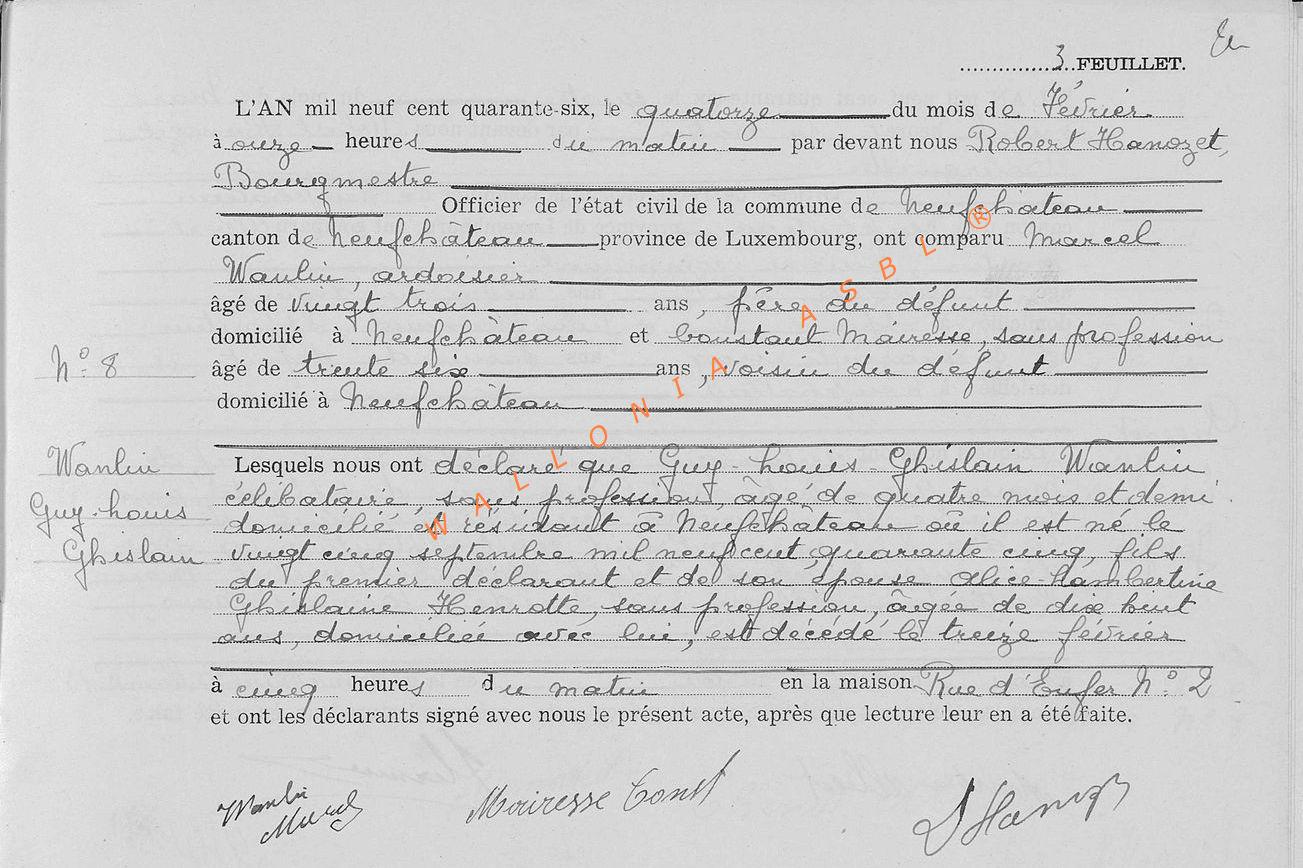 3 FEUILLET.
L'AN mil neuf cent quarante-six, le quatorze du mois de Février
à onze heures du matin par devant nous Robert Hanozet,
Bourgmestre
Officier de l'état civil de la commune de Neufchâteau
canton de Neufchâteau province de Luxembourg, ont comparu Marcel
Wanlin, ardoisier
âgé de vingt trois ans, père du défunt
domicilié à Neufchâteau et Constant Mairesse, sans profession
N° 8
âgé de trente six ans, voisin du défunt
domicilié à Neufchâteau
Wanlin
Guy-Louis
Ghislain
Lesquels nous ont déclaré que Guy-Louis-Ghislain Wanlin
célibataire, sans profession, âgé de quatre mois et demi
domicilié et résidant à Neufchâteau où il est né le
vingt cinq septembre mil neuf cent quarante cinq, fils
du premier déclarant et de son épouse Alice-Lambertine
Ghislaine Henrotte, sans profession, âgée de dix huit
ans, domiciliée avec lui, est décédé le treize février
à cinq heures du matin en la maison Rue d'Enfer N° 2
et ont les déclarants signé avec nous le présent acte, après que lecture leur en a été faite.
Wanlin
Marcel
Mairesse Const
WALLONIA ASBL ®